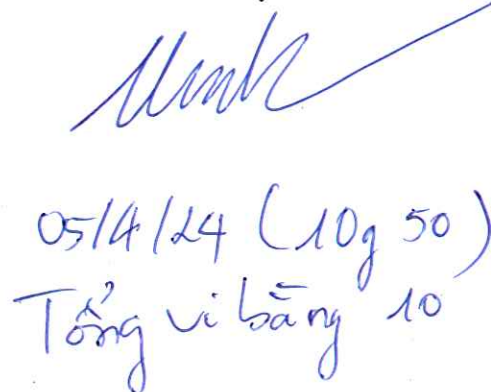 05/4/24 (10g 50)
Tổng vi bằng 10